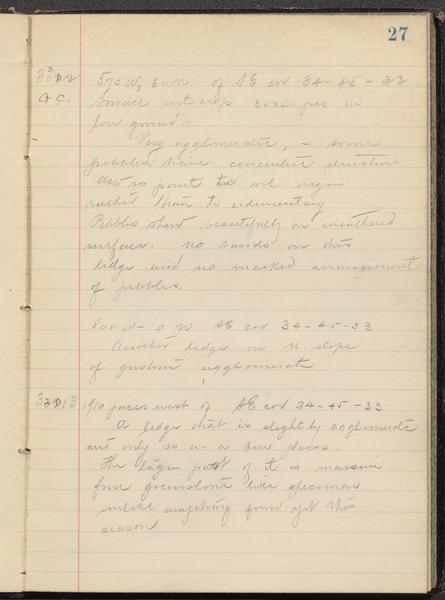 27
575 W, 60 N of SE cor 34-45-33
G.C. Small outcrop in
low ground.
Very agglomeratic, - some
pebbles have concentric structure
and so point to vol. origin
rather than to sedimentary
Pebbles show beautifully on weathered
surface. No bands on this
ledge and no marked arrangement
of pebbles.
800 W - 0 N SE cor 34-45-33
Another ledge on N. slope
of agglomerate
1910 paces west of SE cor 34-45-33
A ledge that is slightly agglomeratic
and only so in a few places.
The larger part of it is massive
fine greenstone like specimen
unlike anything found yet this
season